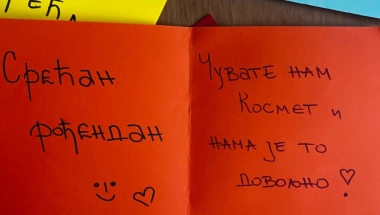 РЕЋ
Срећан
рођендан
Чувате нам
Космет и
нама је то
довољно!